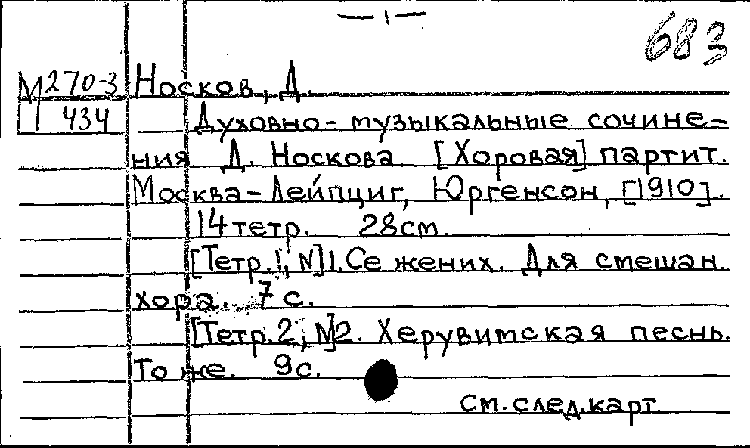 — 1 —
683
М 270-3
434
Носков, Д.
Духовно-музыкальные сочине-
ния Д. Носкова [Хоровая] партит.
Москва-Лейпциг, Юргенсон, [1910].
14 тетр. 28 см.
[Тетр.1, N]1. Се жених. Для смешан.
хора. 7 с.
[Тетр.2, N]2. Херувимская песнь.
То же. 9 с.
см. след. карт